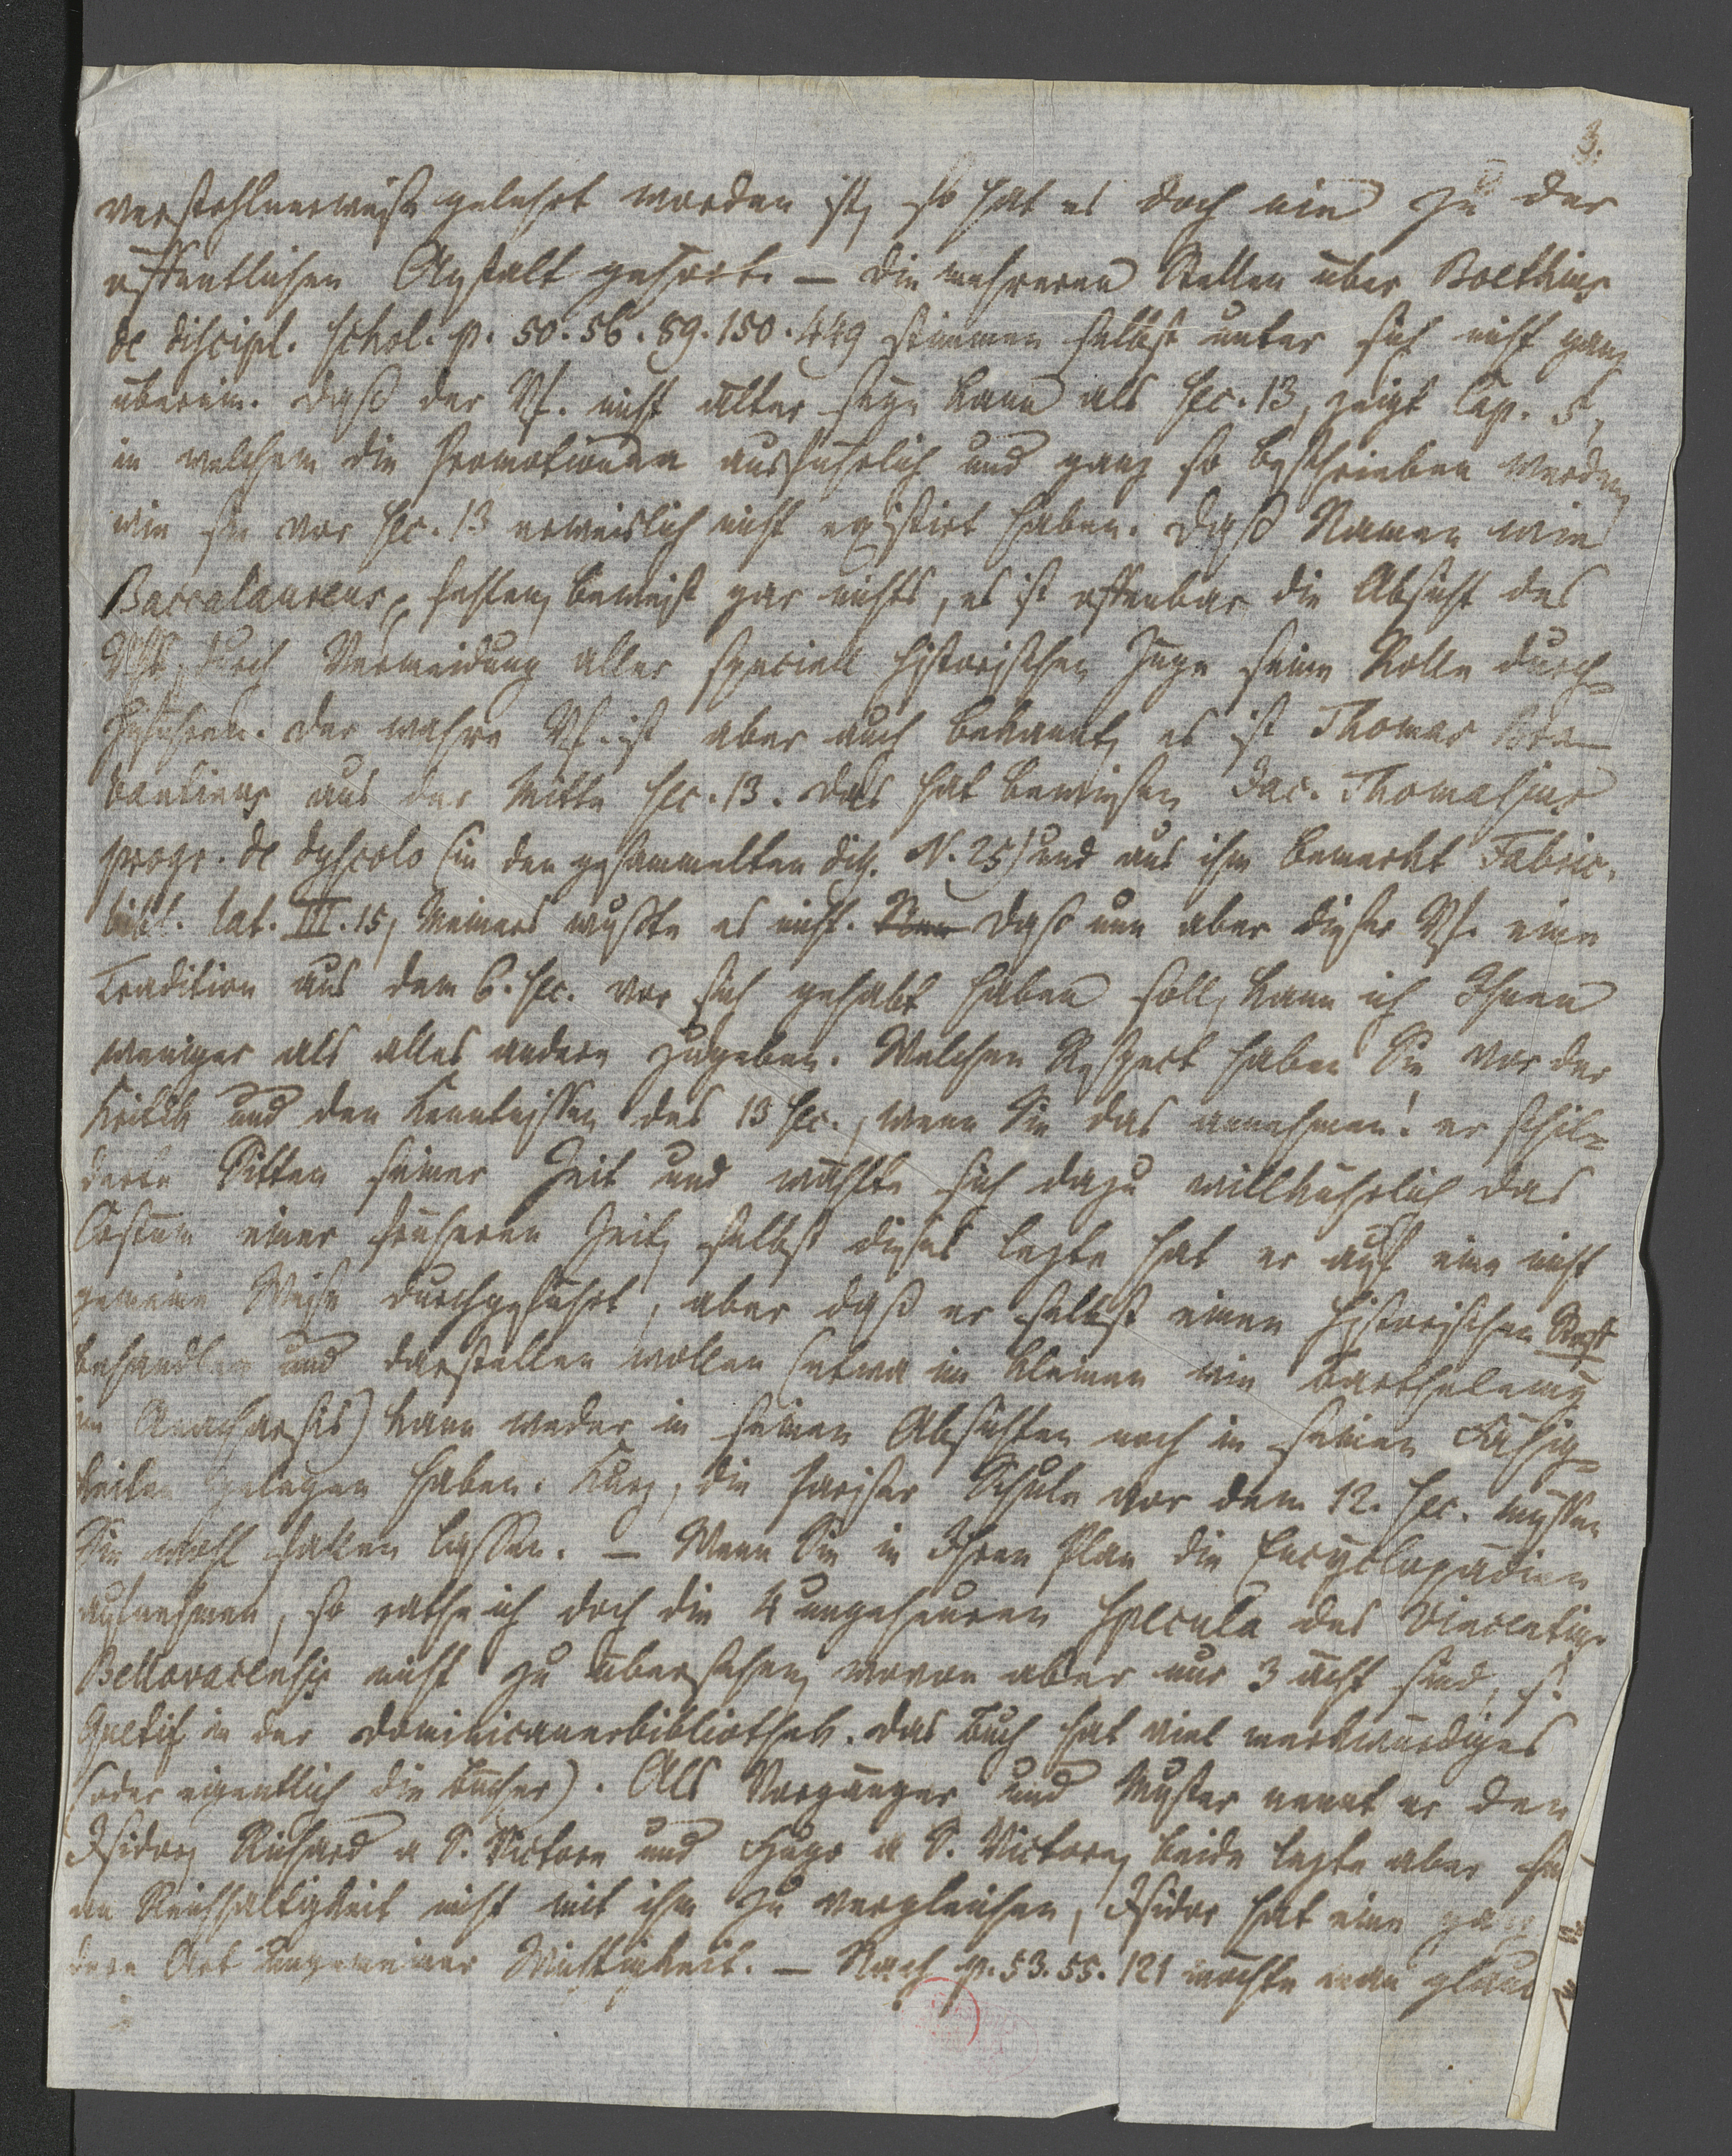 3.
verstohlnerweise gelehrt worden ist, so hat es doch nie zu der
öffentlichen Anstalt gehört. — Die mehreren Stellen über Boethius
de discipl. schol. p. 50. 56. 89. 150. 449 stimmen selbst unter sich nicht ganz
überein. Daß der Vf. nicht älter seyn kann als sec. 13, zeigt Cap. 5,
in welchem die Promotionen ausführlich und ganz so beschrieben werden,
wie sie vor sec. 13 erweislich nicht existirt haben. Daß Namen wie
Baccalaureus, fehlen, beweist gar nichts, es ist offenbar die Absicht des
Vfs, durch Vermeidung aller speciell historischen Züge seine Rolle durch-
zuführen. Der wahre Vf. ist aber auch bekannt, es ist Thomas Bra-
bantinus aus der Mitte sec. 13. Das hat bewiesen Jac. Thomasius
progr. de dyscolo (in den gesammelten diss. N. 25) und aus ihm bemerkt Fabric.
bibl. lat. III. 15, Meiners wußte es nicht. Daß nun aber dieser Vf. eine
Tradition aus dem 6. sec. vor sich gehabt haben soll, kann ich Ihnen
weniger als alles andere zugeben. Welchen Respect haben Sie vor der
Kritik und den Kenntnissen des 13 sec., wenn Sie das annehmen! er schil-
derte Sitten seiner Zeit und wählte sich dazu willkührlich das
Costum einer früheren Zeit, selbst dieses letzte hat er auf eine nicht
gemeine Weise durchgeführt, aber daß er selbst einen historischen Stoff
behandlen und darstellen wollen (etwa im kleinen wie Barthelemy
im Anacharsis) kann weder in seinen Absichten noch in seinen Fähig-
keiten gelegen haben. Kurz, die Pariser Schule vor dem 12. sec. müssen
Sie wohl fallen lassen. — Wenn Sie in Ihren Plan die Encyclopädien
aufnehmen, so rathe ich doch die 4 ungeheuren Specula des Vincentius
Bellovacensis nicht zu übersehen, wovon aber nur 3 ächt sind, s.
Quetif in der Dominicanerbibliothek. Das Buch hat viel merkwürdiges
(oder eigentlich die Bücher). Als Vorgänger und Muster nennt er den
Isidor, Richard a S. Victore und Hugo a S. Victore, beide letzte aber sind
an Reichhaltigkeit nicht mit ihm zu vergleichen, Isidor hat eine ganz
dere Art ungemeiner Wichtigkeit. — Nach p. 53. 55. 121 möchte man glau